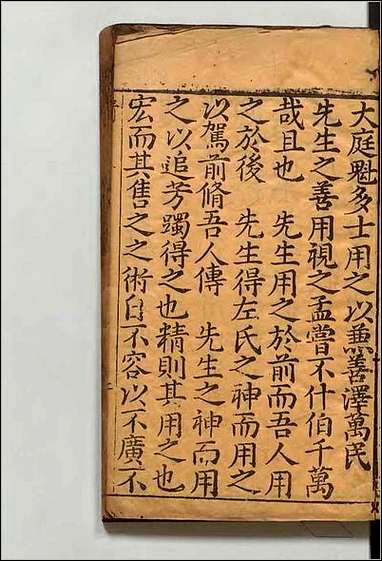 大庭魁多士用之以兼善澤萬民
先生之善用視之孟嘗不什伯千萬
哉且也　先生用之於前而吾人用
之於後　先生得左氏之神而用之
以駕前脩吾人傳　先生之神而用
之以追芳躅得之也精則其用之也
宏而其售之之術自不容以不廣不